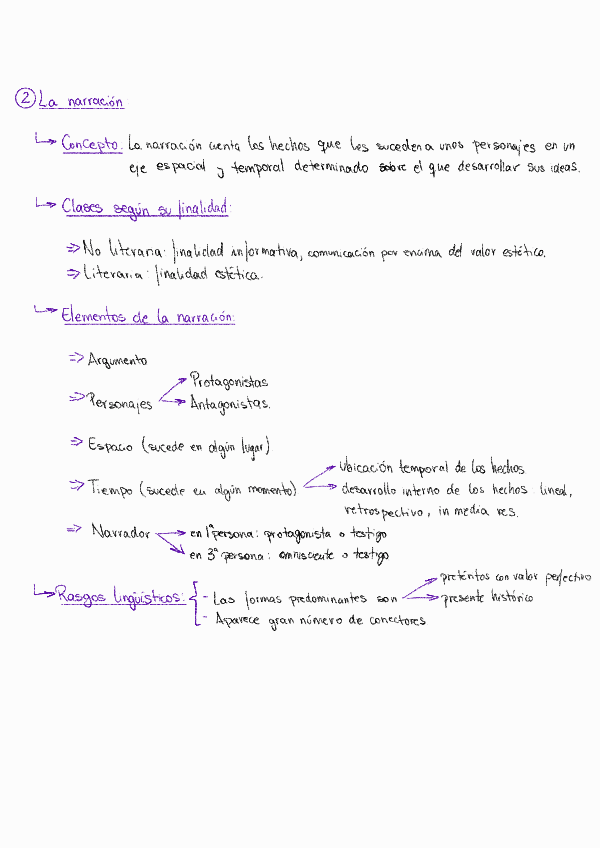 ② La narración
Concepto: La narración cuenta los hechos que les suceden a unos personajes en un
eje espacial y temporal determinado sobre el que desarrollar sus ideas.
Clases según su finalidad:
⇒ No literaria: finalidad informativa, comunicación por encima del valor estético.
⇒ Literaria: finalidad estética.
Elementos de la narración:
⇒ Argumento
⇒ Personajes → Protagonistas
→ Antagonistas.
⇒ Espacio (sucede en algún lugar)
⇒ Tiempo (sucede en algún momento) → ubicación temporal de los hechos
→ desarrollo interno de los hechos lineal,
retrospectivo, in media res.
⇒ Narrador → en 1ª persona: protagonista o testigo
→ en 3ª persona: omnisciente o testigo
Rasgos lingüísticos: - Las formas predominantes son → pretéritos con valor perfectivo
→ presente histórico
- Aparece gran número de conectores